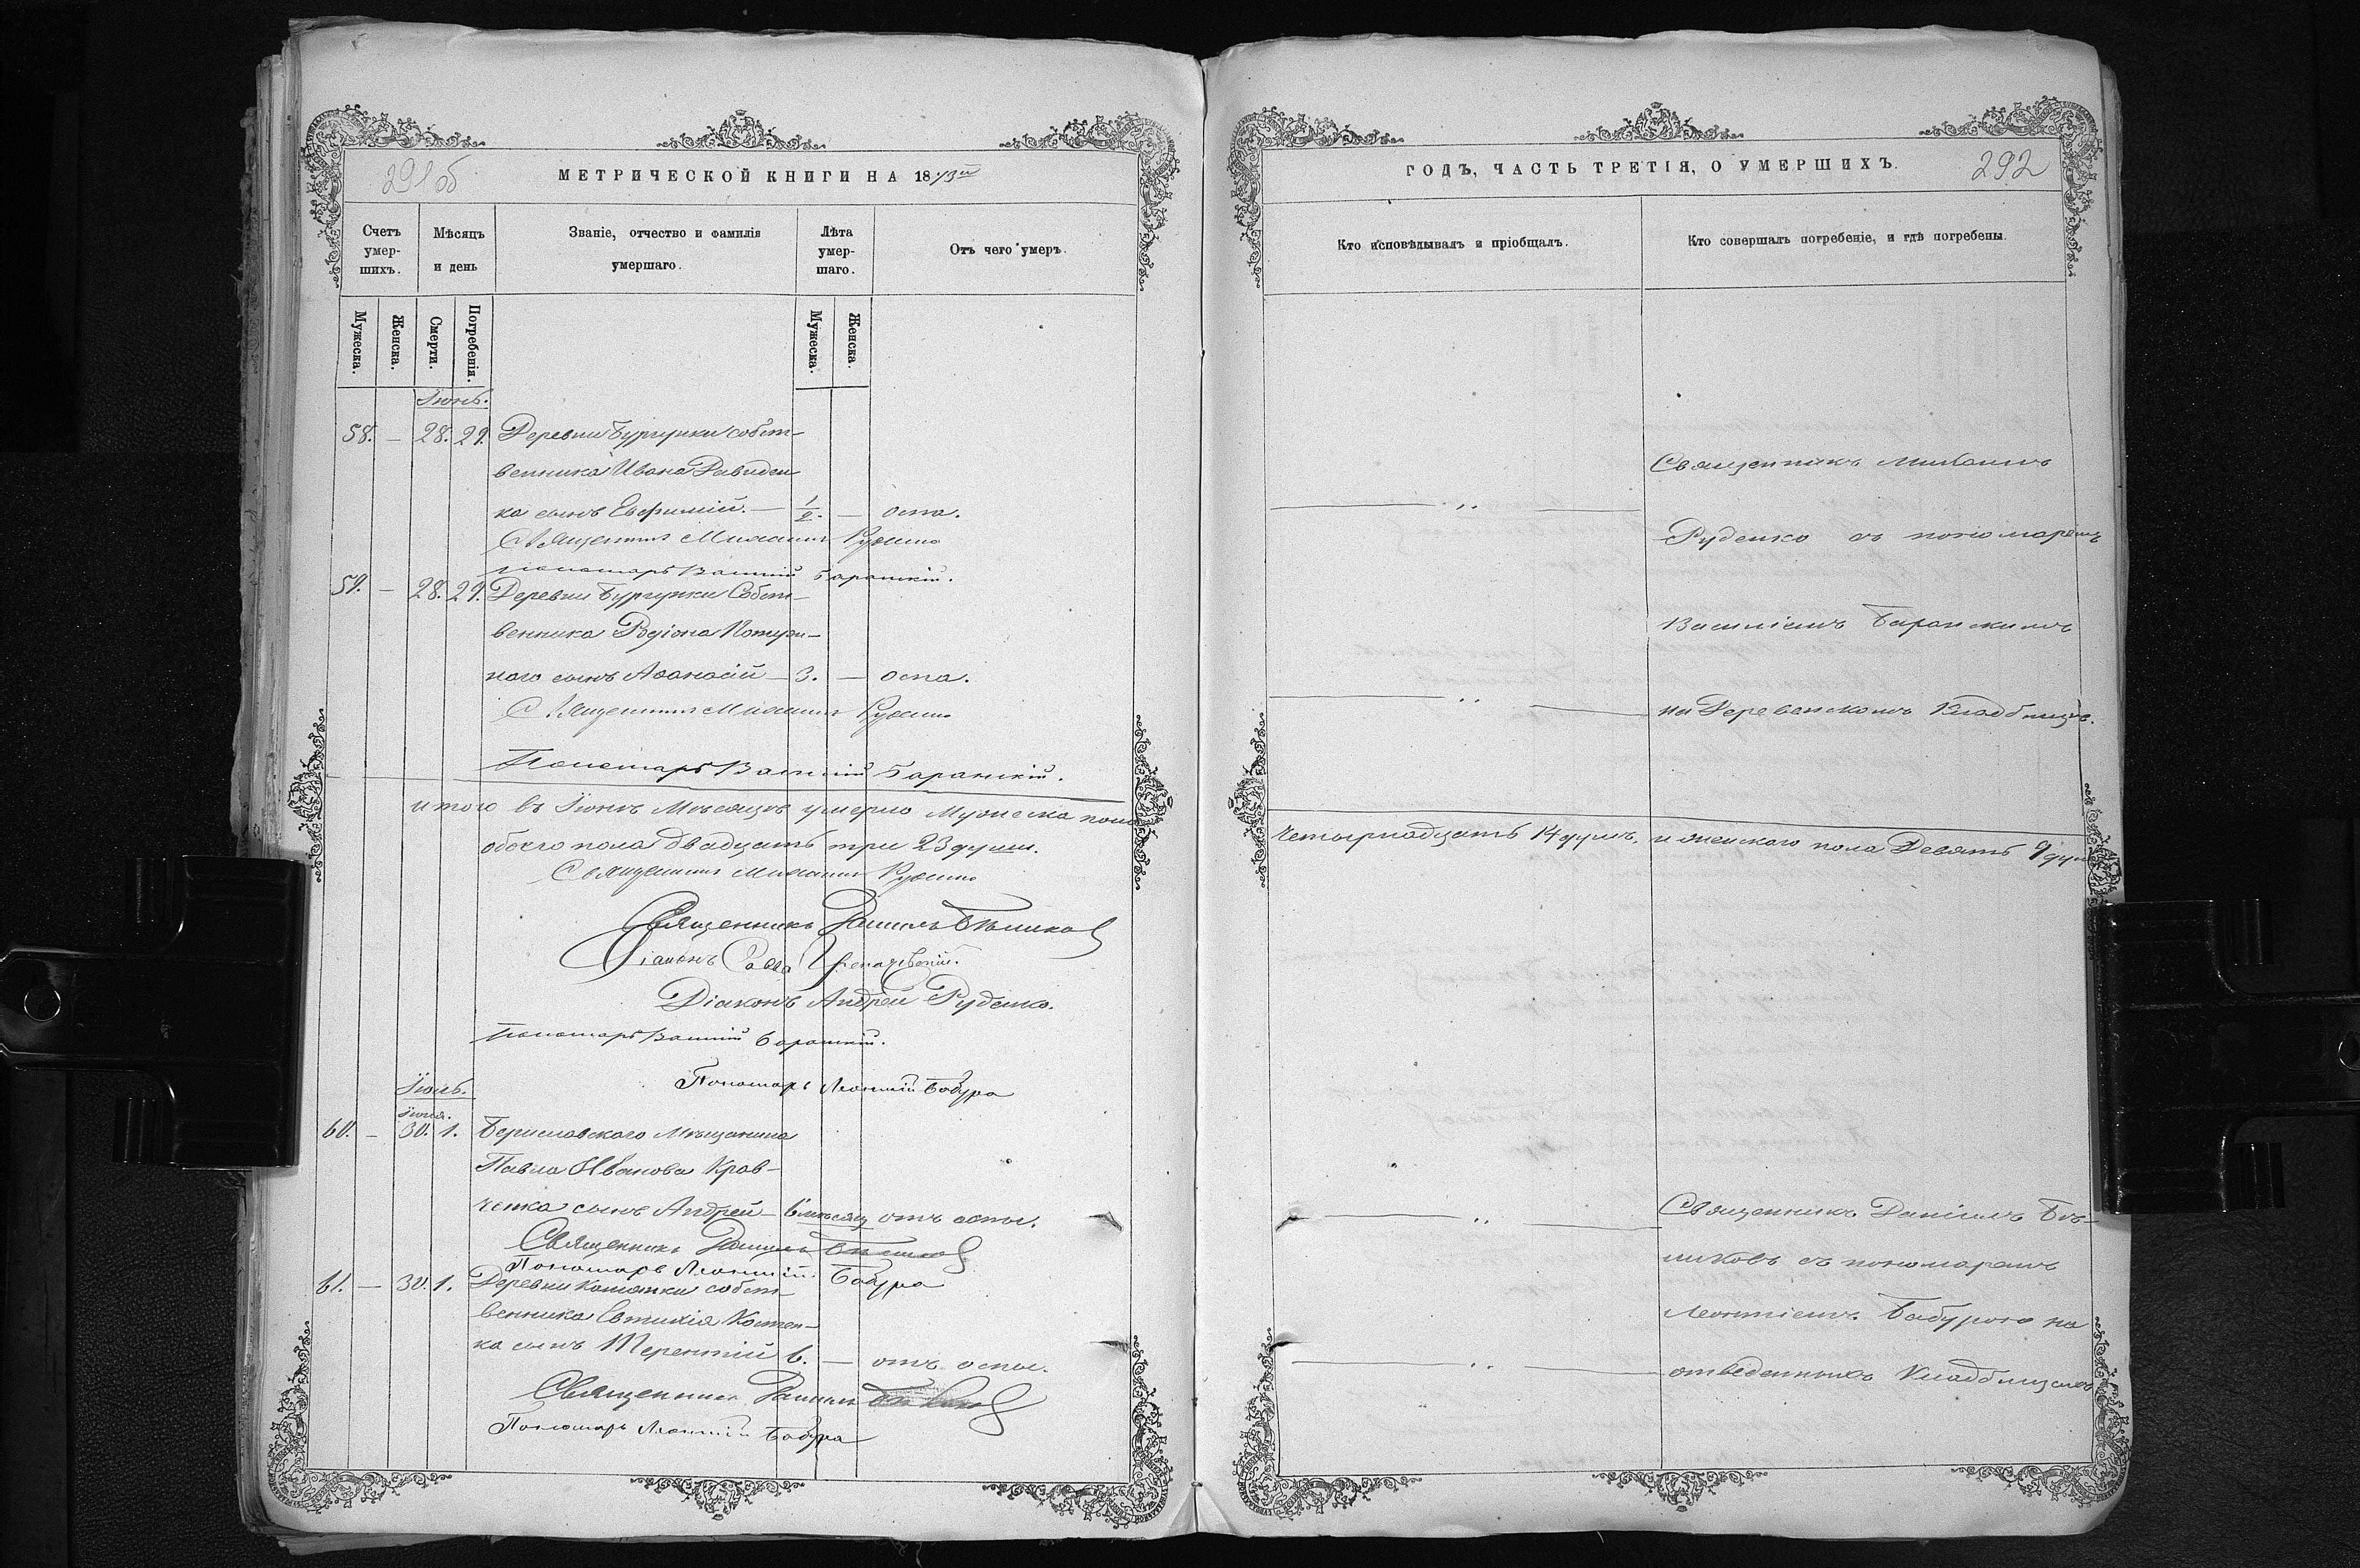 291об
МЕТРИЧЕСКОЙ КНИГИ НА 1873й
Счетъ умер-шихъ.
Мѣсяцъ и день
Званіе, отчество и фамилія умершаго.
Лѣта умер-шаго.
Отъ чего умеръ.
Мужеска.
Женска.
Смерти.
Погребенія.
Мужеска.
Женска.
Іюнь.
58. — 28. 29. Деревни Бургунки собст-
венника Ивана Давиден
ка сынъ Евфимій. — 1/2. — оспа.
Священникъ Михаилъ Руденко
Пономарь Василій Баранскій.
59. — 28. 29. Деревни Бургунки Собст-
венника Родіона
наго сынъ Аѳанасій — 3. — оспа.
Священникъ Михаилъ Руденко
Пономарь Василій Баранскій.
итого въ Іюнѣ Мѣсяцѣ умерло Мужеска пола
обоего пола двадцать три 23 души.
Священникъ Михаилъ Руденко
Священникъ Даніилъ Бѣликов
Діаконъ Савва
Діаконъ Андрей Руденко.
Пономарь Василій Баранскій.
Пономарь Леонтій Бабура
Іюль.
Іюня.
60. — 30. 1. Бериславского Мѣщанина
Павла Иванова Крав-
ченка сынъ Андрей — 6 мѣсяц отъ оспы.
Священникъ Даніилъ Бѣликов
Пономарь Леонтій Бабура
61. — 30. 1. Деревни Козацки собст-
венника Евтихія Костен-
ка сынъ Терентій 6. — отъ оспы.
Священникъ Даніилъ Бѣликов
Пономарь Леонтій Бабура
ГОДЪ, ЧАСТЬ ТРЕТІЯ, О УМЕРШИХЪ.
292
Кто исповѣдывалъ и пріобщалъ.
Кто совершалъ погребеніе, и гдѣ погребены.
Священникъ Михаилъ
Руденко съ пономаремъ
Василіемъ Баранскимъ
на Деревенскомъ Кладбищѣ.
четырнадцать 14 душъ. и женского пола Девять 9 душ
Священникъ Даніилъ Бѣ-
ликовъ съ пономаремъ
Леонтіемъ Бабурою на
отведенныхъ Кладбищахъ